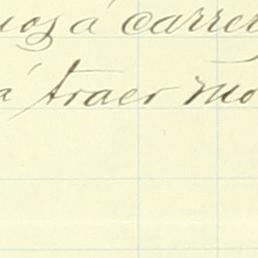 á carre
á traer mo